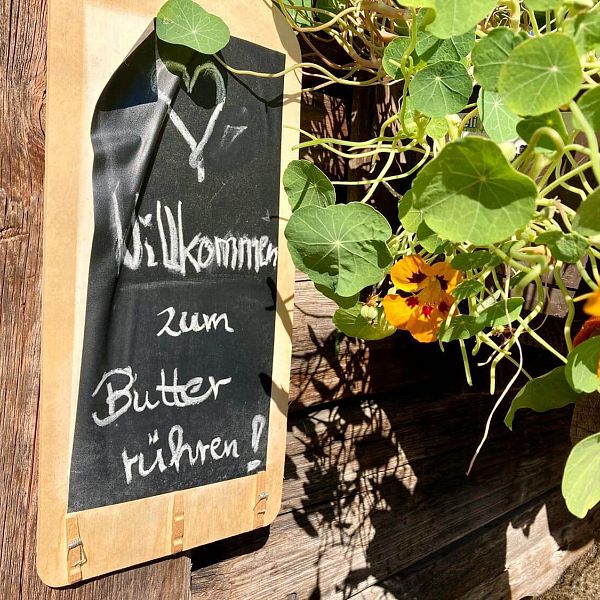 Willkommen
zum
Butter
rühren!